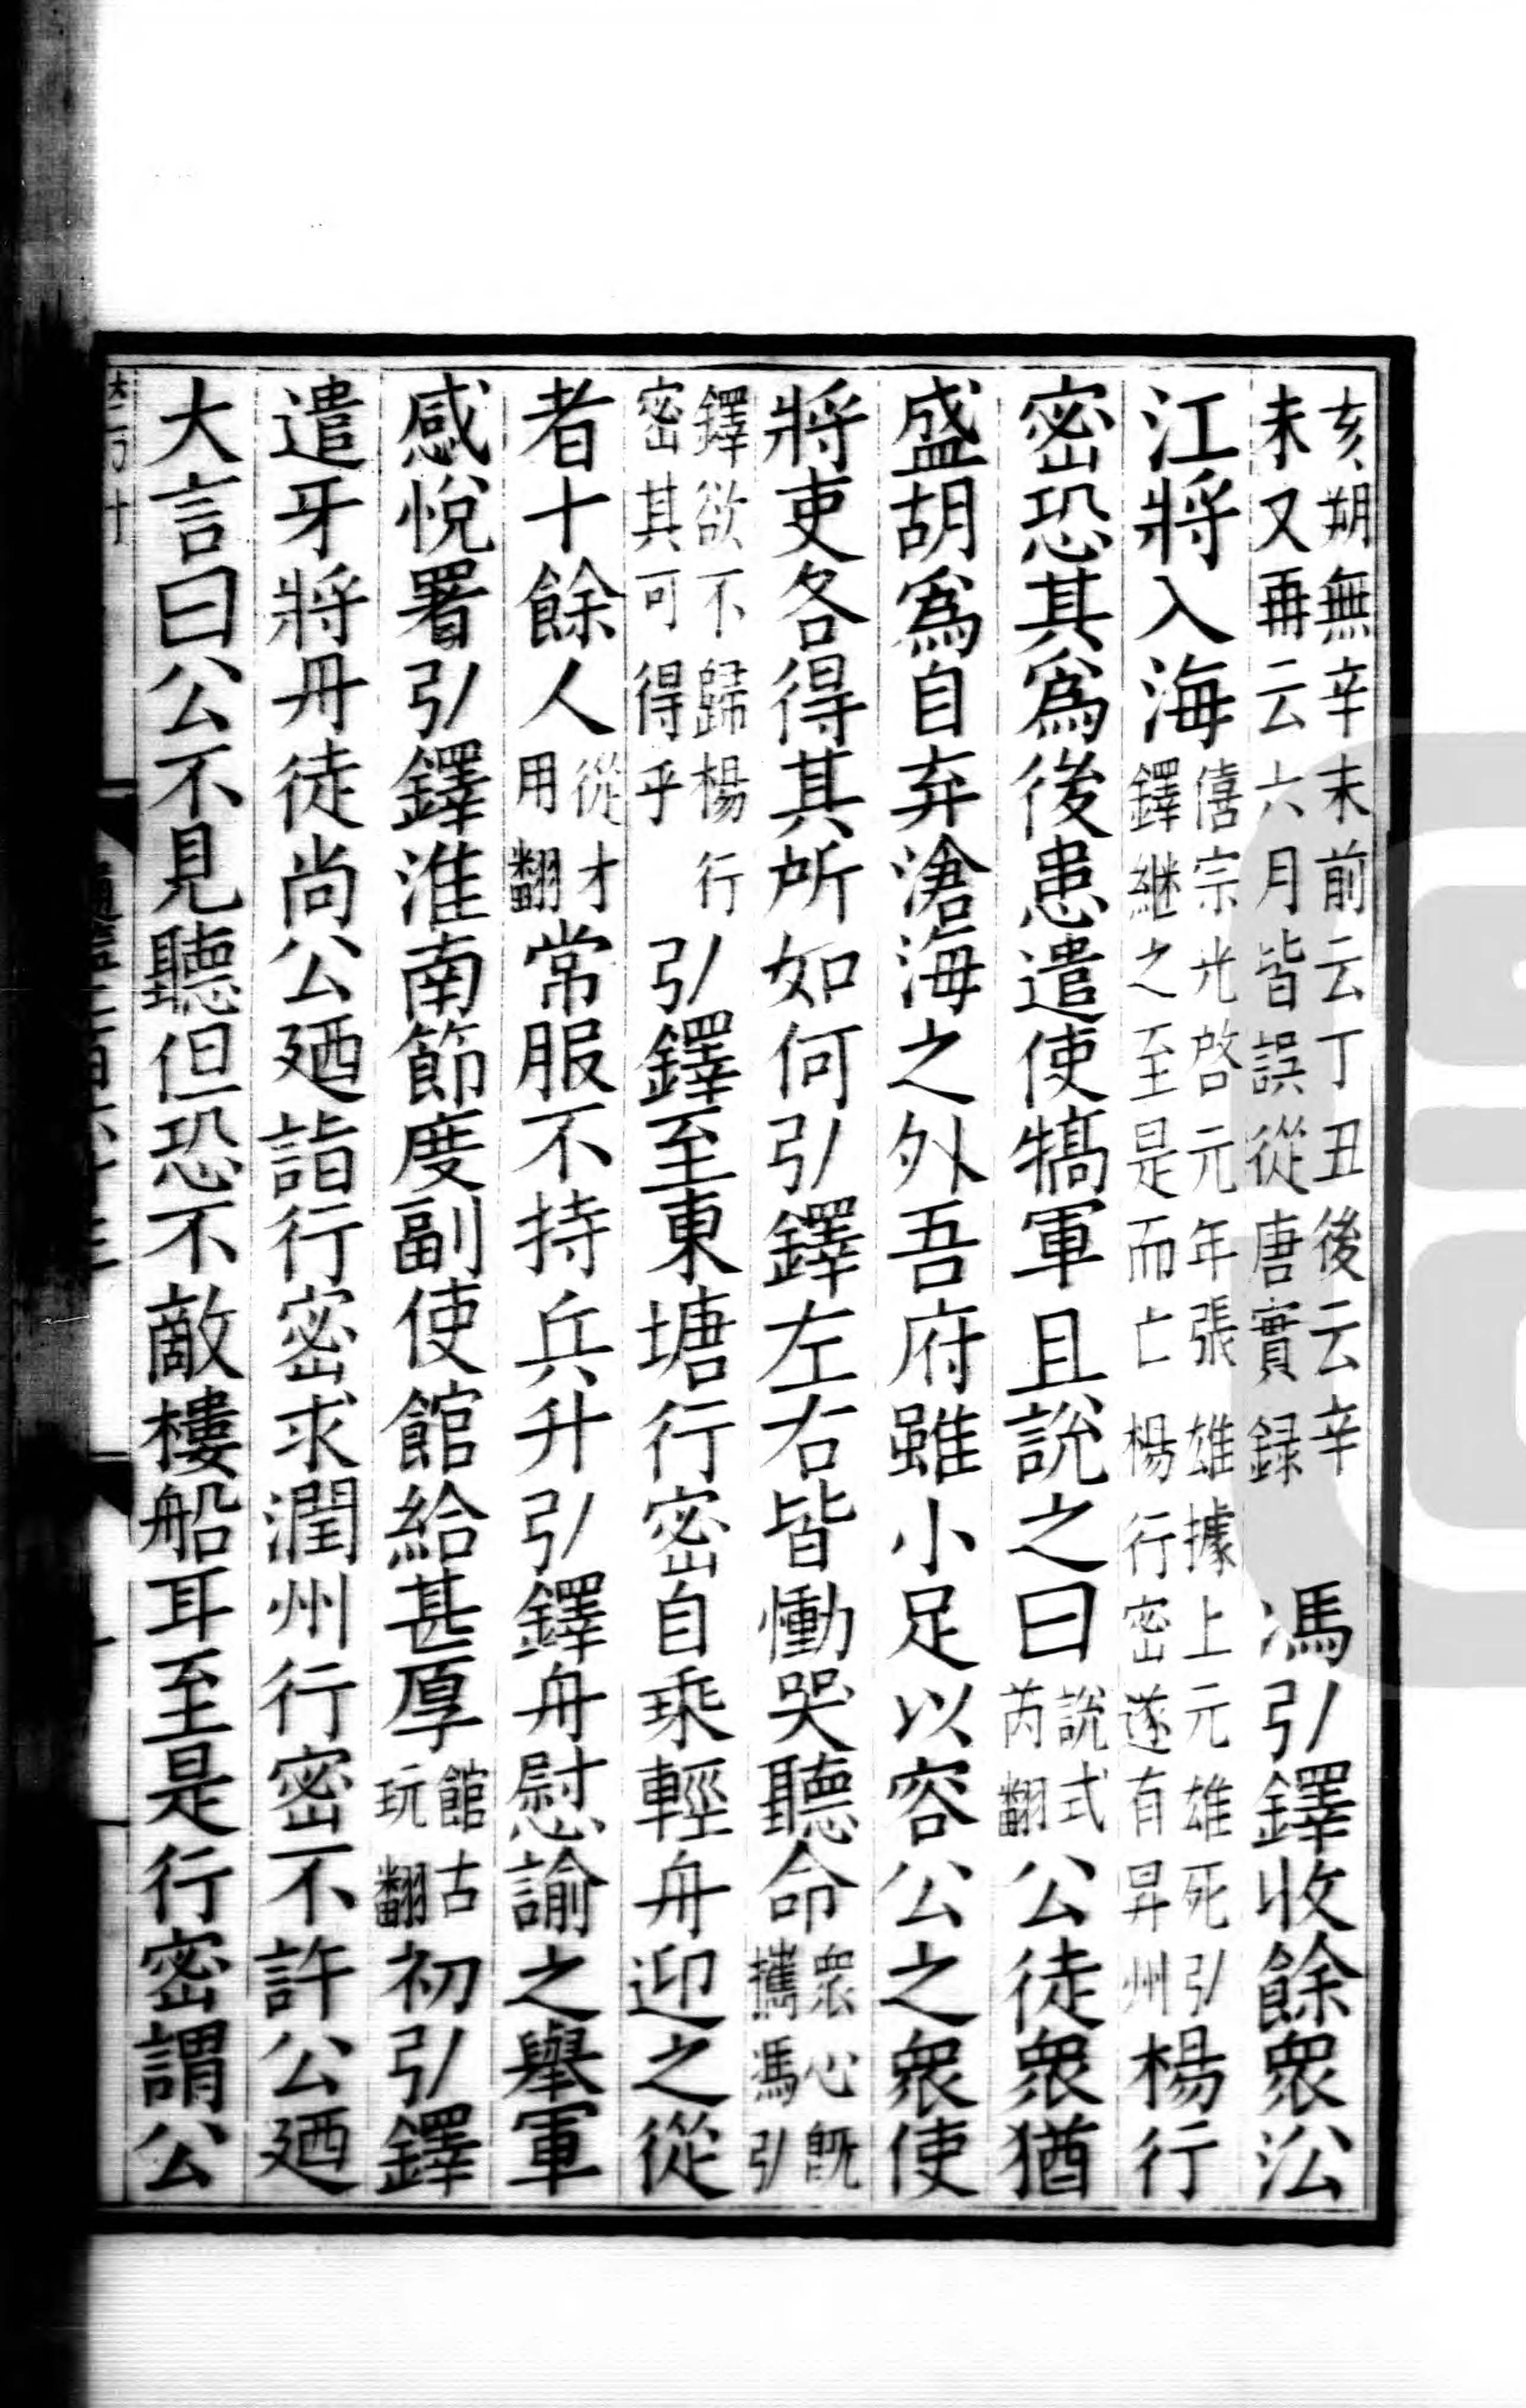 亥朔無辛未前云丁丑後云辛未又再云六月皆誤從唐實録馮引鐸收餘衆㳂
江將入海僖宗光啓元年張雄據上元雄死引鐸繼之至是而亡楊行密遂有昇州楊行
密恐其爲後患遣使犒軍且說之曰說式芮翻公徒衆猶
盛胡爲自弃滄海之外吾府雖小足以容公之衆使
將吏各得其所如何引鐸左右皆慟哭聽命衆心旣攜馮引
鐸欲不歸楊行密其可得乎引鐸至東塘行密自乘輕舟迎之從
者十餘人從才用翻常服不持兵升引鐸舟慰諭之舉軍
感悅署引鐸淮南節度副使館給甚厚館古玩翻初引鐸
遣牙將丹徒尚公廼詣行密求潤州行密不許公廼
大言曰公不見聽但恐不敵樓船耳至是行密謂公